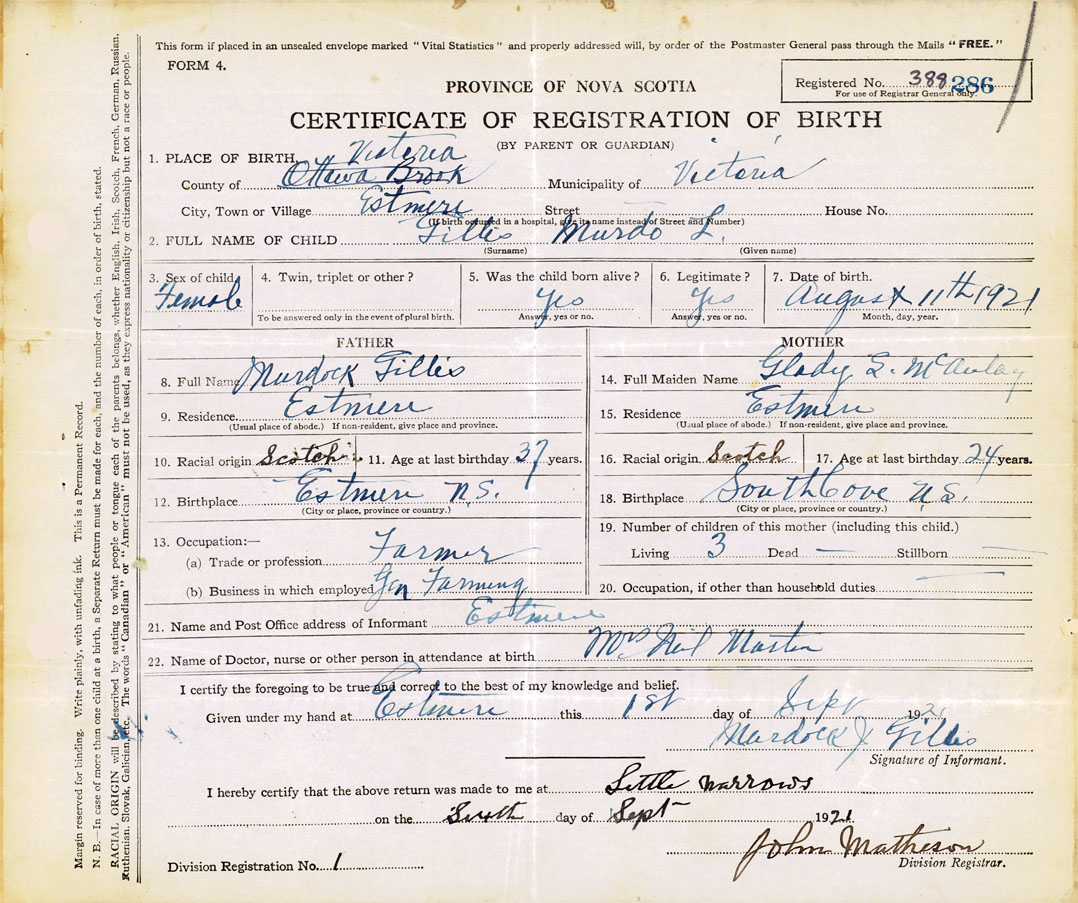 This form if placed in an unsealed envelope marked "Vital Statistics" and properly addressed will, by order of the Postmaster General pass through the Mails "FREE."
FORM 4.
Registered No. 388 286
For use of Registrar General only.
PROVINCE OF NOVA SCOTIA
CERTIFICATE OF REGISTRATION OF BIRTH
(BY PARENT OR GUARDIAN)
1. PLACE OF BIRTH, Victoria
County of Ottawa Brook Municipality of Victoria
City, Town or Village Estmere Street House No.
(If birth occurred in a hospital, give its name instead of Street and Number)
2. FULL NAME OF CHILD Gillis Murdo L.
(Surname) (Given name)
3. Sex of child 4. Twin, triplet or other? 5. Was the child born alive? 6. Legitimate? 7. Date of birth.
Female Yes Yes August 11th 1921
To be answered only in the event of plural birth. Answer, yes or no. Answer, yes or no. Month, day, year.
FATHER
8. Full Name Murdock Gillis
9. Residence. Estmere
(Usual place of abode.) If non-resident, give place and province.
10. Racial origin Scotch 11. Age at last birthday 37 years.
12. Birthplace Estmere N.S.
(City or place, province or country.)
13. Occupation:—
(a) Trade or profession Farmer
(b) Business in which employed Gen Farming
MOTHER
14. Full Maiden Name Glady S. McAulay
15. Residence Estmere
(Usual place of abode.) If non-resident, give place and province.
16. Racial origin Scotch 17. Age at last birthday 24 years.
18. Birthplace South Cove N.S.
(City or place, province or country.)
19. Number of children of this mother (including this child.)
Living 3 Dead — Stillborn —
20. Occupation, if other than household duties —
21. Name and Post Office address of Informant Estmere
22. Name of Doctor, nurse or other person in attendance at birth Mrs Neil Martin
I certify the foregoing to be true and correct to the best of my knowledge and belief.
Given under my hand at Estmere this 1st day of Sept 1921
Murdock J Gillis
Signature of Informant.
I hereby certify that the above return was made to me at Little Narrows
on the day of Sept 1921
John Matheson
Division Registrar.
Division Registration No. 1
Margin reserved for binding. Write plainly, with unfading ink. This is a Permanent Record.
N. B.—In case of more than one child at a birth, a Separate Return must be made for each, and the number of each, in order of birth, stated.
RACIAL ORIGIN will be described by stating to what people or tongue each of the parents belongs, whether English, Irish, Scotch, French, German, Russian,
Ruthenian, Slovak, Galician, etc. The words "Canadian" or "American" must not be used, as they express nationality or citizenship but not a race or people.